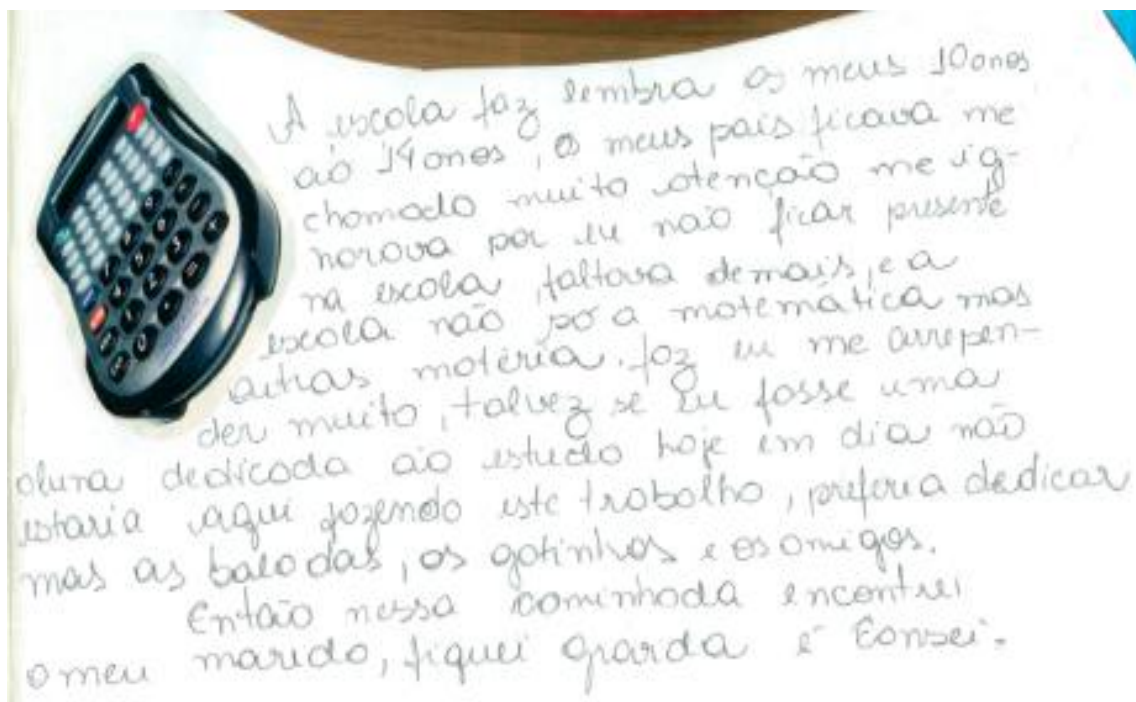 A escola faz lembra os meus 10 anos
ao 14 anos, o meus pais ficava me
chamado muito atenção me ig-
norava por eu não ficar presente
na escola, faltava demais, e a
escola não só a matemática mas
outras matéria. faz eu me arrepen-
der muito, talvez se eu fosse uma
aluna dedicada ao estudo hoje em dia não
estaria aqui fazendo este trabalho, preferia dedicar
mas as baladas, os gatinhos e os amigos.
Então nessa caminhada encontrei
o meu marido, fiquei é